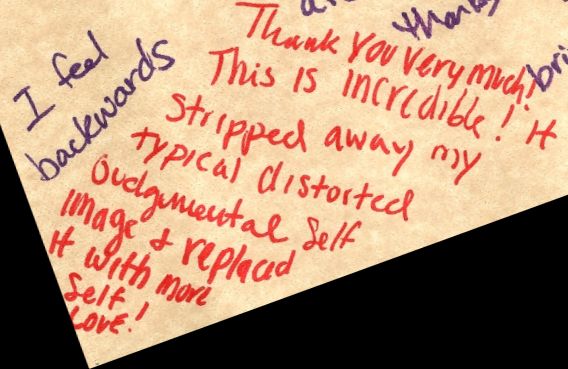 I feel
backwards
Thank You very much!
This is incredible! It
stripped away my
typical distorted
Judgmental self
image & replaced
it with more
self
love!